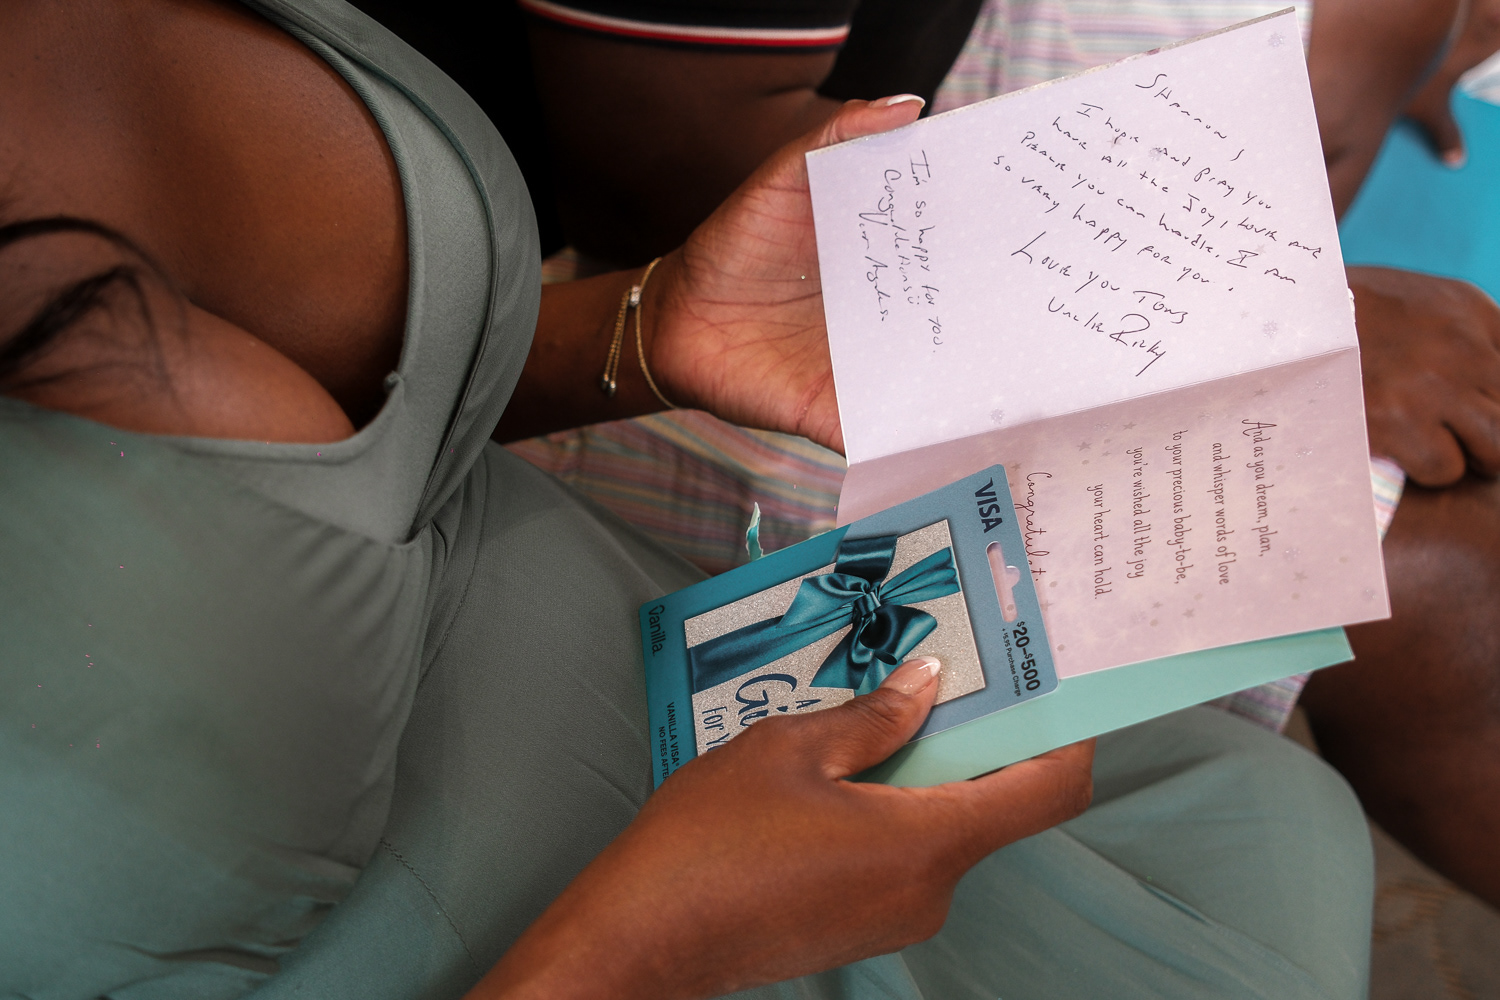 Shannon,
I hope and pray you
have all the Joy, Lovie and
Pleasure you can handle. I am
so vary happy for you.
Love you Tons
Uncle Ricky
I'm so happy for you.
Congratulations
And as you dream, plan,
and whisper words of love
to your precious baby-to-be,
you're wished all the joy
your heart can hold.
Congratulati
VISA
$20-$500
+ $5.95 Purchase Charge
Vanilla
A
Gi
FOR Y
VANILLA VISA®
NO FEES AFTE